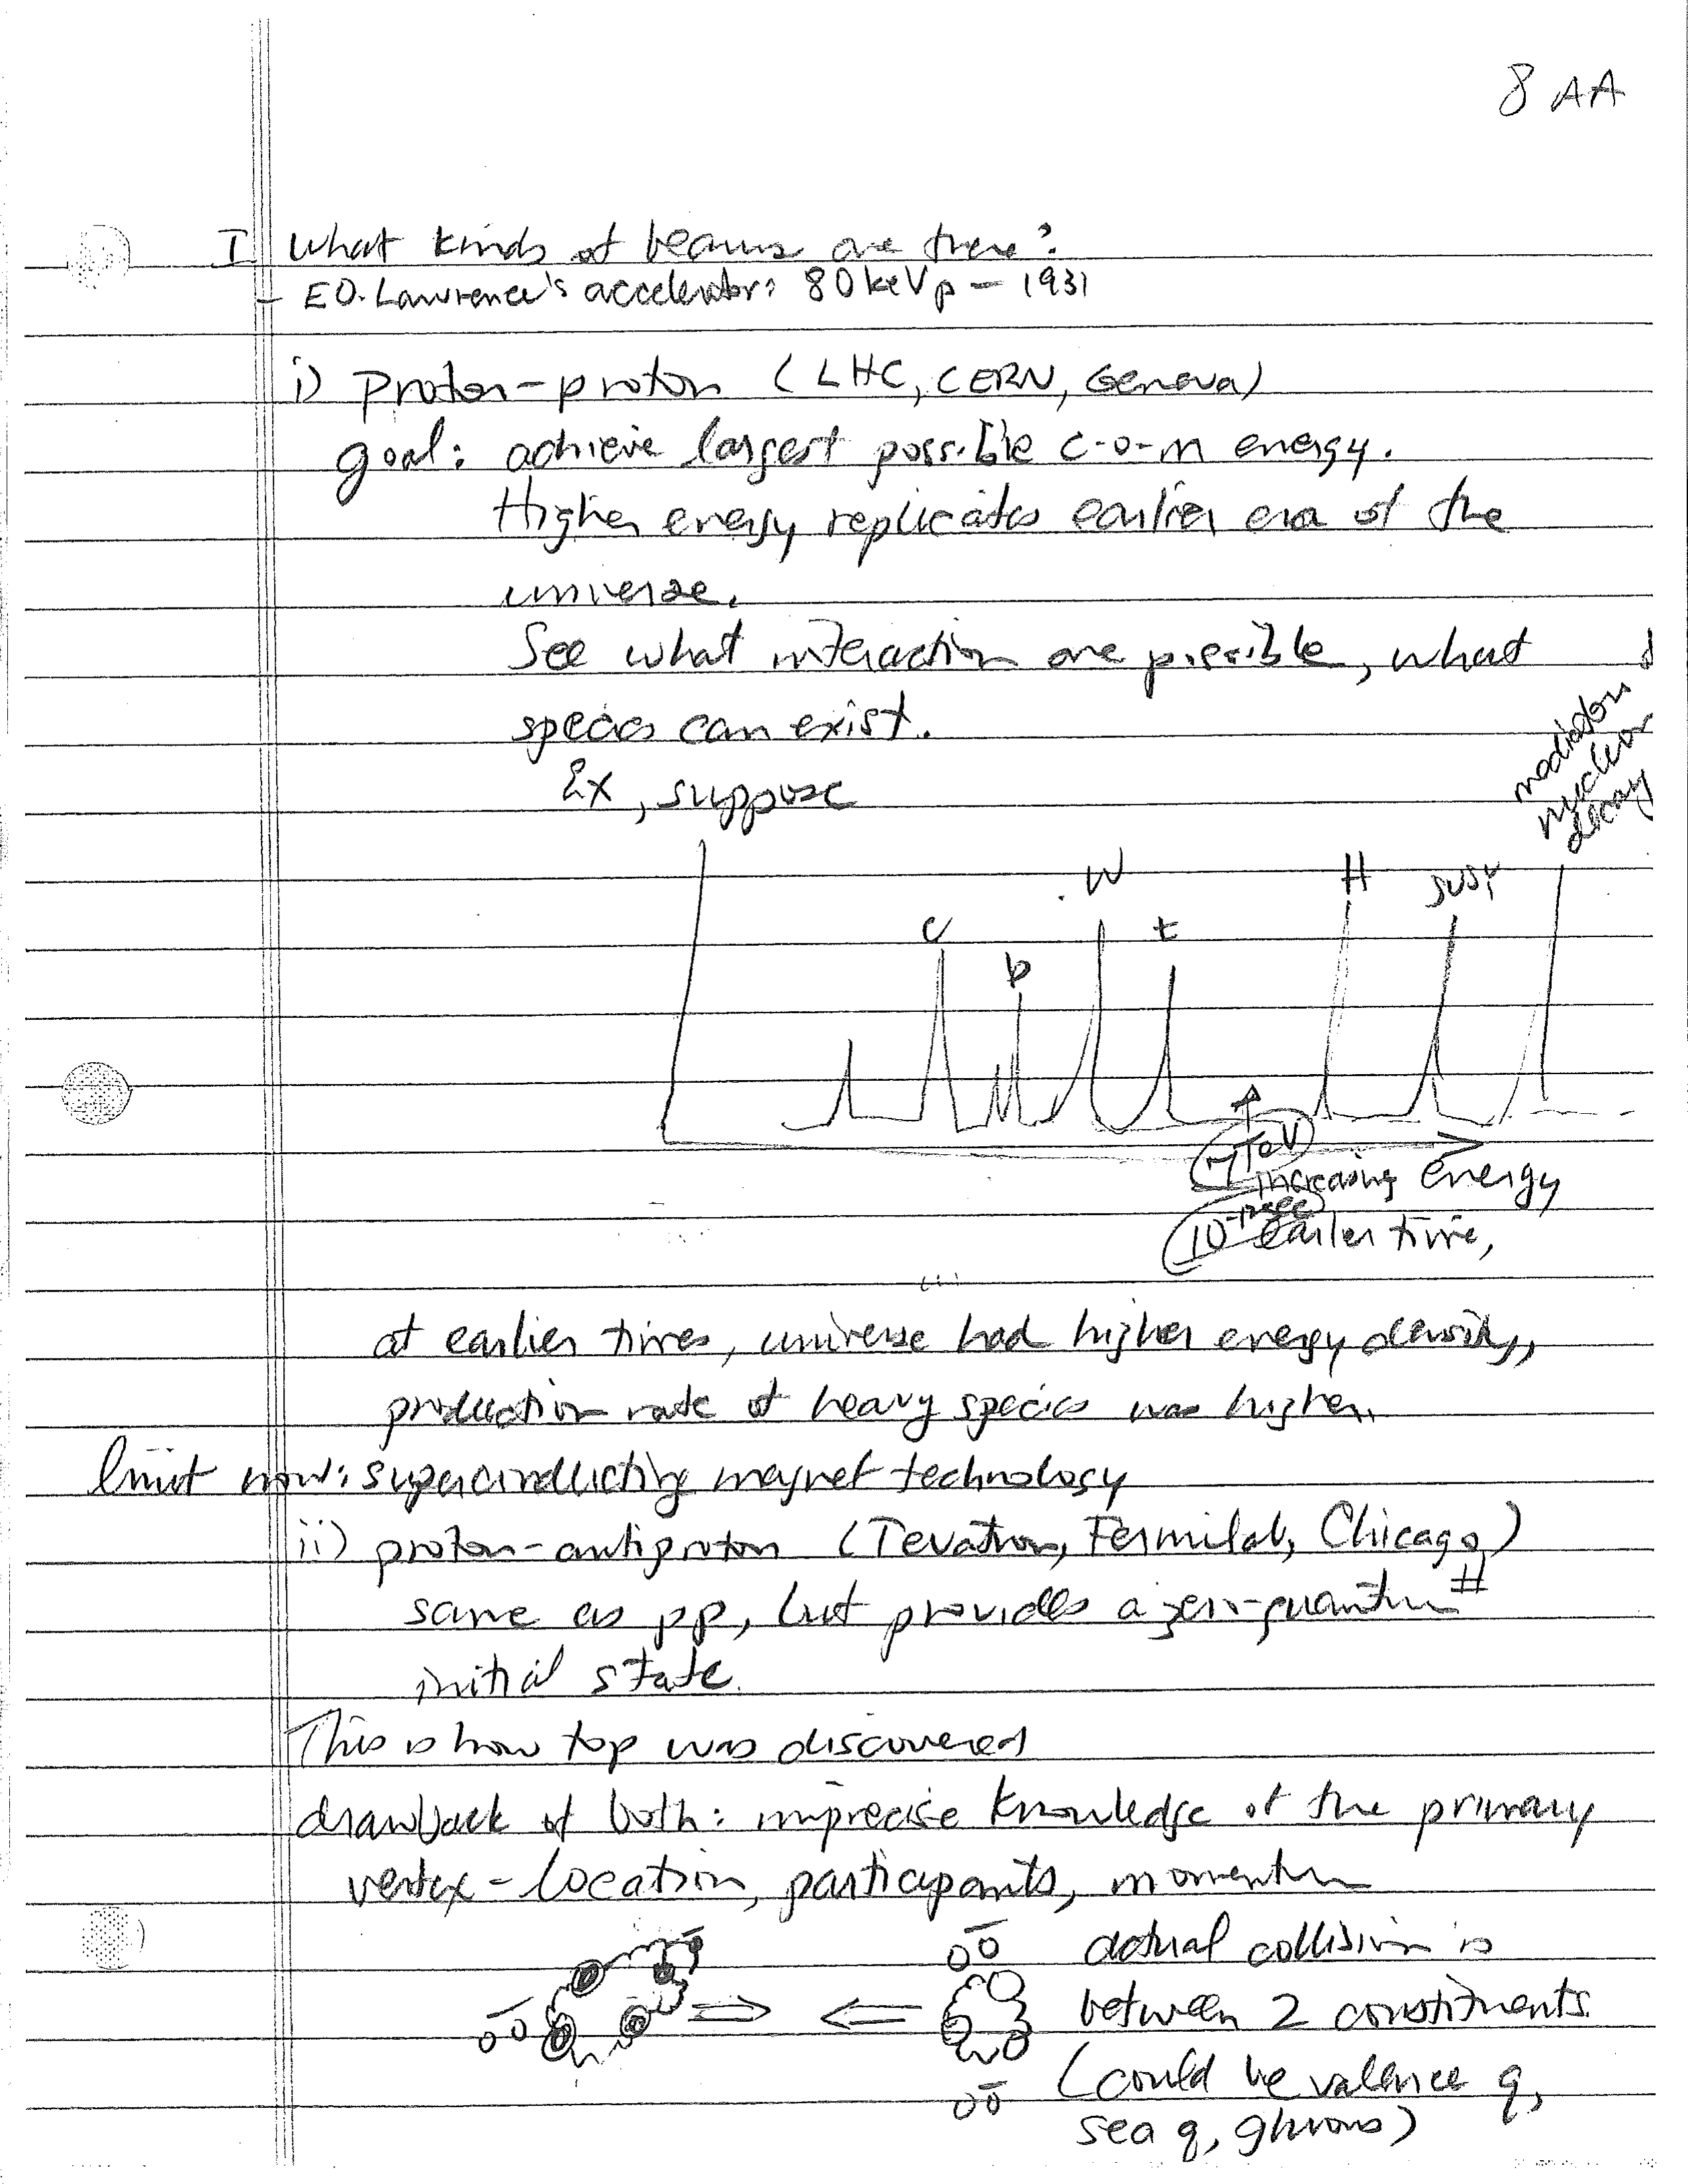 8 AA
I What kinds of beams are there?
- EO. Lawrence's accelerator: 80 keV p - 1931
i) Proton-proton (LHC, CERN, Geneva)
goal: achieve largest possible c-o-m energy.
Higher energy replicates earlier era of the
universe.
See what interaction are possible, what
species can exist.
Ex, suppose
mediators
nuclear
decay
W
H
SUSY
c
t
b
TeV
increasing energy
earlier time,
at earlier times, universe had higher energy density,
production rate of heavy species was higher.
limit now: superconducting magnet technology
ii) proton-antiproton (Tevatron, Fermilab, Chicago)
same as pp, but provides a zero-quantum #
initial state.
This is how top was discovered
drawback of both: imprecise knowledge of the primary
vertex - location, participants, momentum
actual collision is
between 2 constituents
(could be valence q,
sea q, gluons)